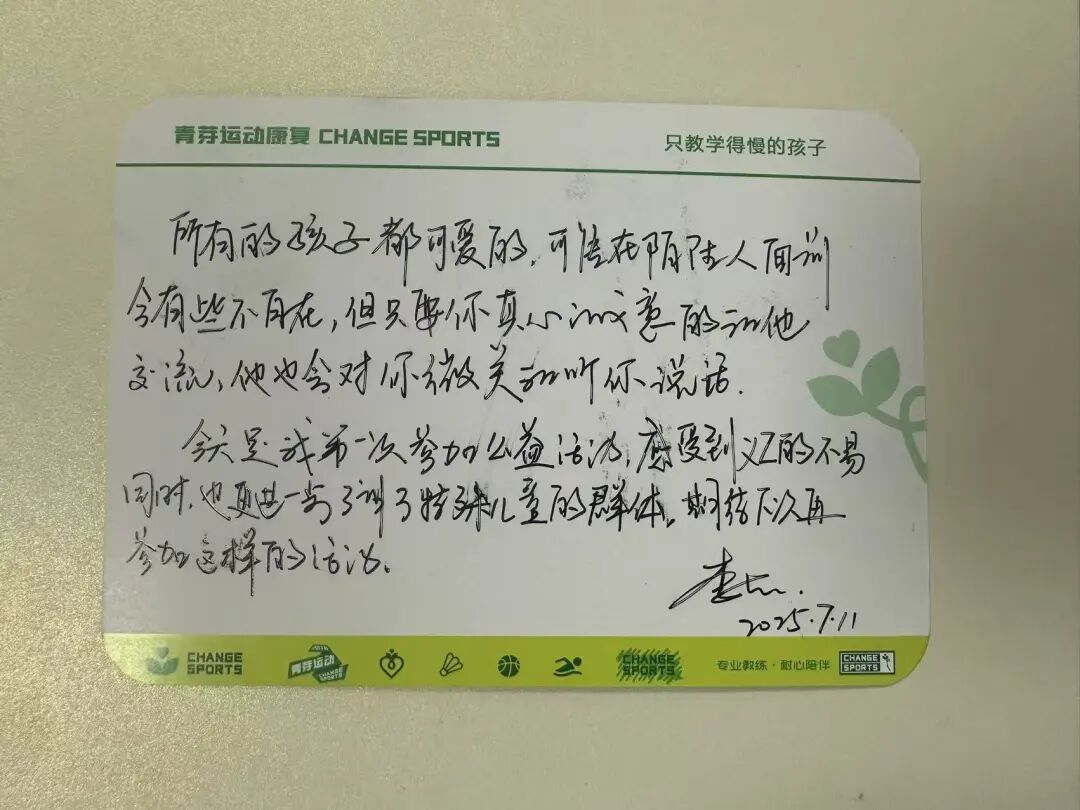 青芽运动康复 CHANGE SPORTS
只教学得慢的孩子
所有的孩子都可爱的,可能在陌生人面前
会有些不自在,但只要你真心诚意的和他
交流,他也会对你微笑和听你说话.
今天是我第一次参加公益活动,感受到义工的不易
同时,也更进一步了解了特殊儿童的群体。期待下次再
参加这样的活动.
李
2025.7.11
CHANGE SPORTS
青芽运动 CHANGE SPORTS
CHANGE SPORTS
专业教练·耐心陪伴
CHANGE SPORTS